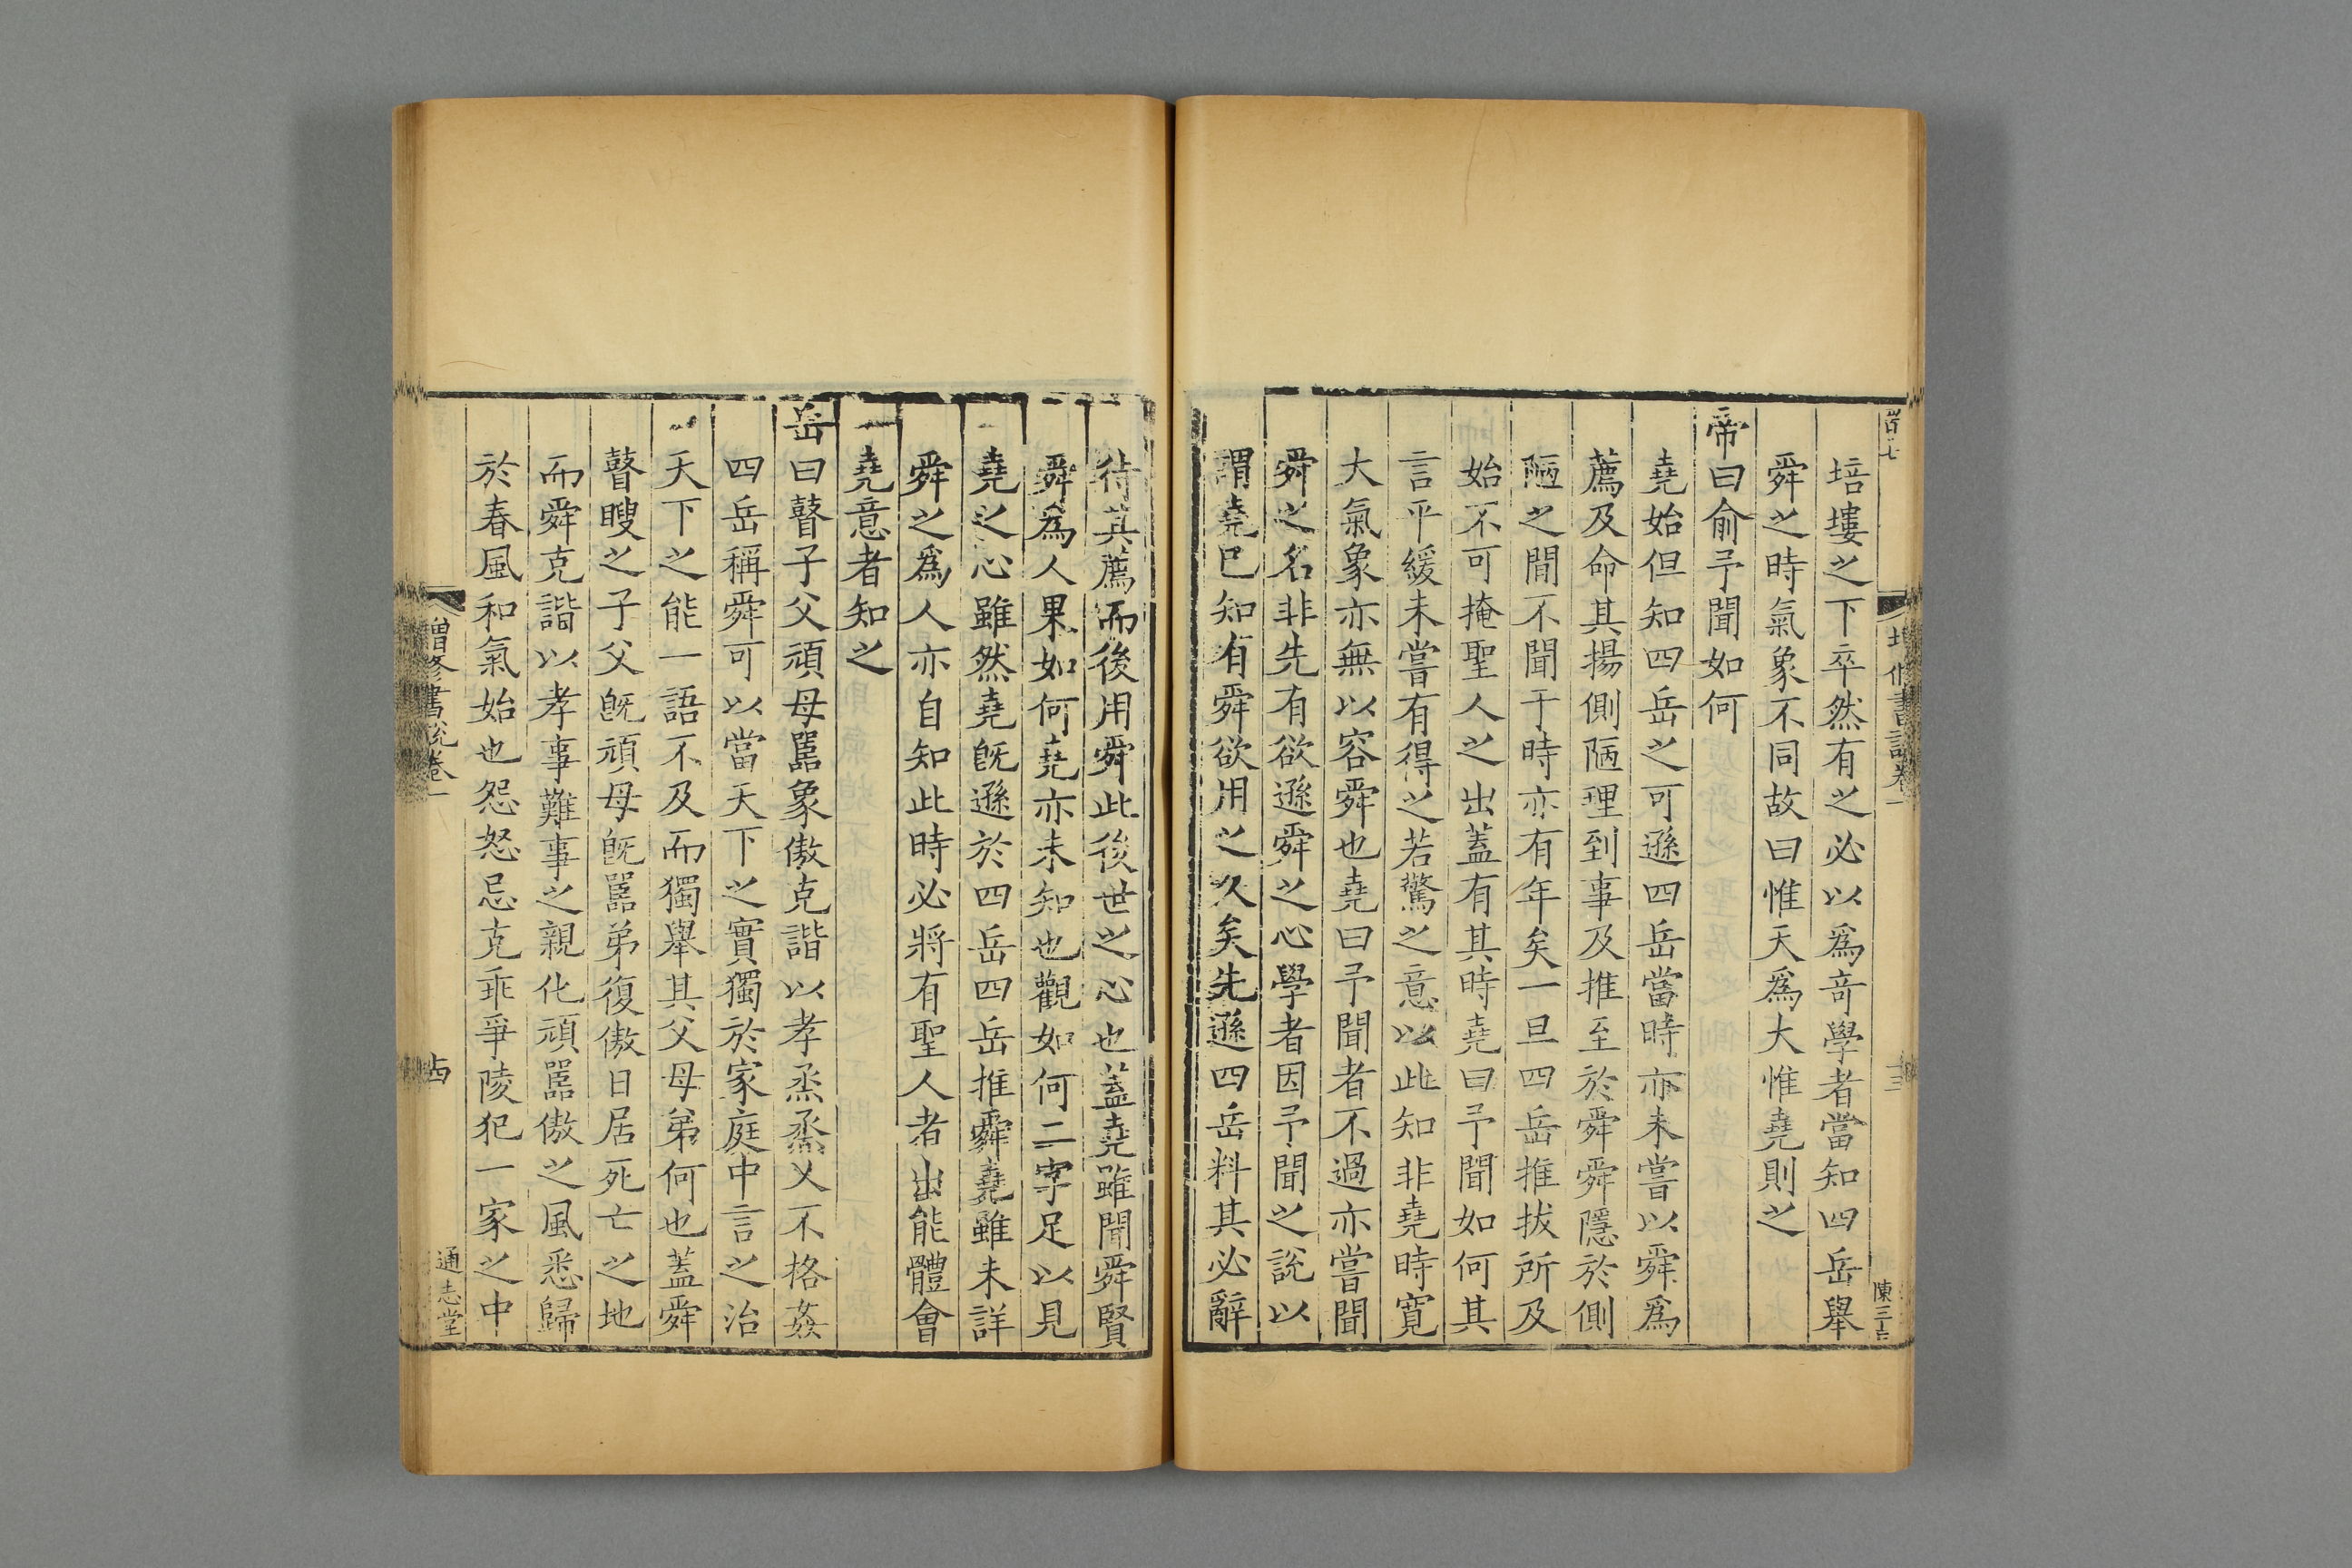 培塿之下卒然有之必以為竒學者當知四岳舉
舜之時氣象不同故曰惟天爲大惟堯則之
帝曰俞予聞如何
堯始但知四岳之可遜四岳當時亦未嘗以舜爲
薦及命其揚側陋理到事及推至於舜舜隱於側
陋之間不聞于時亦有年矣一旦四岳推拔所及
始不可掩聖人之出蓋有其時堯曰予聞如何其
言平緩未嘗有得之若驚之意以此知非堯時寛
大氣象亦無以容舜也堯曰予聞者不過亦嘗聞
舜之名非先有欲遜舜之心學者因予聞之說以
謂堯已知有舜欲用之久矣先遜四岳料其必辭
待其薦而後用舜此後世之心也蓋堯雖聞舜賢
舜爲人果如何堯亦未知也觀如何二字足以見
堯之心雖然堯旣遜於四岳四岳推舜堯雖未詳
舜之爲人亦自知此時必將有聖人者出能體會
堯意者知之
岳曰瞽子父頑母嚚象傲克諧以孝烝烝乂不格姦
四岳稱舜可以當天下之實獨於家庭中言之治
天下之能一語不及而獨舉其父母弟何也蓋舜
瞽瞍之子父旣頑母旣嚚弟復傲日居死亡之地
而舜克諧以孝事難事之親化頑嚚傲之風悉歸
於春風和氣始也怨怒忌克乖爭陵犯一家之中
增修書說卷一
十四
通志堂